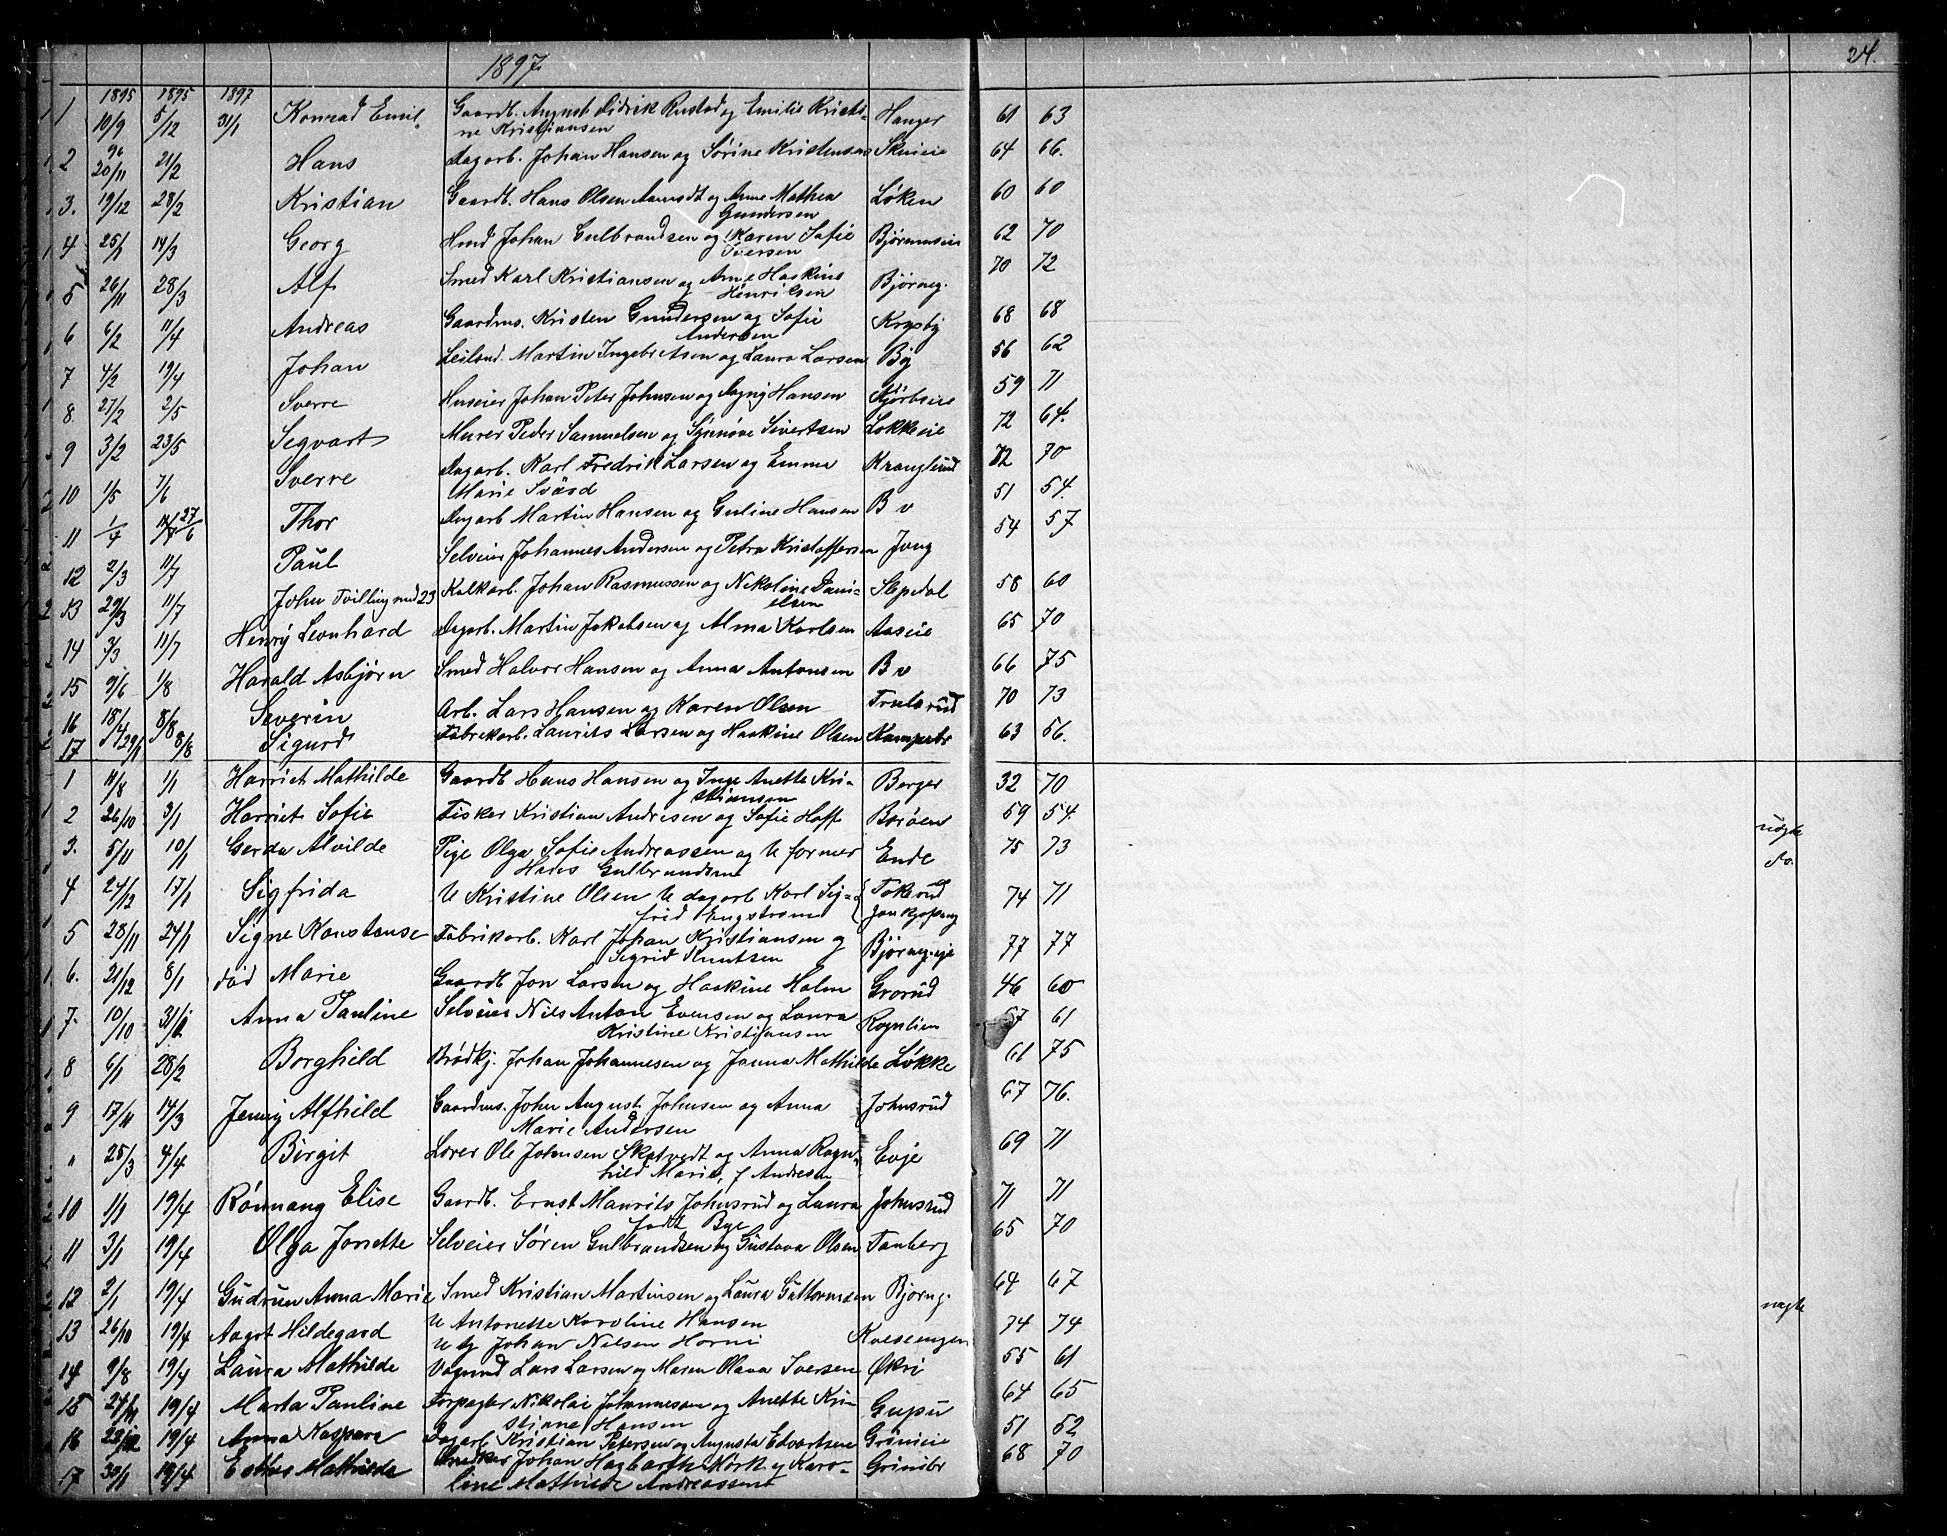 1897
24.
1895 1895 1897
1 10/9 5/12 31/1 Konrad Emil Gaardb. August Didrik Rustad og Emilie Kristi- Hanger 61 63
ne Kristiansen
96
2 20/11 21/2 Hans Dagarb. Johan Hansen og Sørine Kristensen Skuieie 64 66.
3. 19/12 28/2 Kristian Gaardb. Hans Olsen Aamodt og Anne Mathea Løken 60 60
Gundersen
4 25/1 14/3 Georg Hmd Johan Gulbrandsen og Karen Sofie 62 70
Iversen
5 26/11 28/3 Alf Smed Karl Kristiansen og Anne Haakine Bjørneg. 70 72
Henriksen
6 6/2 11/4 Andreas Gaardms. Kristen Gundersen og Sofie 68 68
Andersen
7 4/2 19/4 Johan Leilend. Martin Ingebretsen og Laura Larsen By 56 62
8. 27/2 2/5 Sverre Huseier Johan Peter Johnsen og Hansen 59 71
9 3/2 23/5 Segvart Murer Peder Samuelsen og Synnøve Sivertsen Løkkeie 72 64.
10 1/5 7/6 Sverre Dagarb. Karl Fredrik Larsen og Emma Kranglund 72 70
Marie Svärd
11 1/4 27/6 Thor Dagarb Martin Hansen og Guline Hansen B v 51 54.
12 2/3 11/7 Paul Selveier Johannes Andersen og Petra Kristoffersen Jong 54 57
13 29/3 11/7 John Tvilling med 23 Kalkarb. Johan Rasmussen og Nikoline Dani- Slependal 58 60
elsen
14 3/3 11/7 Henry Leonhard Dagarb. Martin Jakobsen og Alma Karlsen Aaseie 65 70
15 9/6 1/8 Harald Asbjørn Smed Halvor Hansen og Anna Antonsen B v 66 75
16 18/4 8/8 Severin Arb. Lars Hansen og Karen Olsen Trulsrud 70 73
17 29/1 8/8 Sigurd Fabrikarb. Laurits Larsen og Haakine Olsen Kampebr 63 56.
1 11/8 1/1 Harriet Mathilde Gaardb Hans Hansen og Inge Anette Kri- Berger 32 70
stiansen
2 26/10 3/1 Harriet Sofie Fisker Kristian Andresen og Sofie Hoff Borøen 59 54.
3. 5/11 10/1 Gerda Alvilde Pige Olga Sofie Andreassen og U former Ende 75 73 uægte
Hans Gulbrandsen
4 24/12 17/1 Sigfrida U Kristine Olsen U dagarb Karl Sig- Tokerud 74 71 do.
frid Engstrøm Jonkjøping
5 28/11 24/1 Signe Konstanse Fabrikarb. Karl Johan Kristiansen og Bjørneg.eje 77 77
Sigrid Knutsen
6. 21/12 8/1 død Marie Gaardb Jon Larsen og Haakine Holm Grorud 46 60
7. 10/10 31/1 Anna Pauline Selveier Nils Anton Evensen og Laura Rognlien 57 61
Kristine Kristiansen
8 6/1 28/2 Borghild Brødkj. Johan Johannesen og Janna Mathilde Løkke 61 75
9 17/11 14/3 Jenny Alfhild Gaardms. John August Johnsen og Anna Johnsrud 67 76.
Marie Andersen
" 25/3 4/4 Birgit Lærer Ole Johnsen Skotvedt og Anna Ragn- Evje 69 71
hild Marie, f Andresen
10 1/1 19/4 Rønnaug Elise Gaardb. Ernst Maurits Johnsrud og Laura Johnsrud 71 71
født Bye
11 3/1 19/4 Olga Jonette Selveier Søren Gulbrandsen og Gustava Olsen Tanberg 65 70
12 2/1 19/4 Gudrun Anna Marie Smed Kristian Martinsen og Laura Guttormsen Bjørng. 64 67
13 26/10 19/4 Aagot Hildegard U Antonette Karoline Hansen 74 74 uægte
U Johan Nielsen Horni
14 9/8 19/4 Laura Mathilde Lars Larsen og Maren Olava Iversen Økri 55 61
15 19/4 Marta Pauline Forpagter Nikolai Johannesen og Anette Kri- Gupu 64 65
stiane Hansen
16 19/4 Anna Kaspara Dagarb Kristian Petersen og Augusta Edvartsen Grinieie 51 52
17 30/1 19/4 Esther Mathilde Snedker Johan Hagbarth Mørk og Karo- Grinibr 68 70
line Mathilde Andreassen